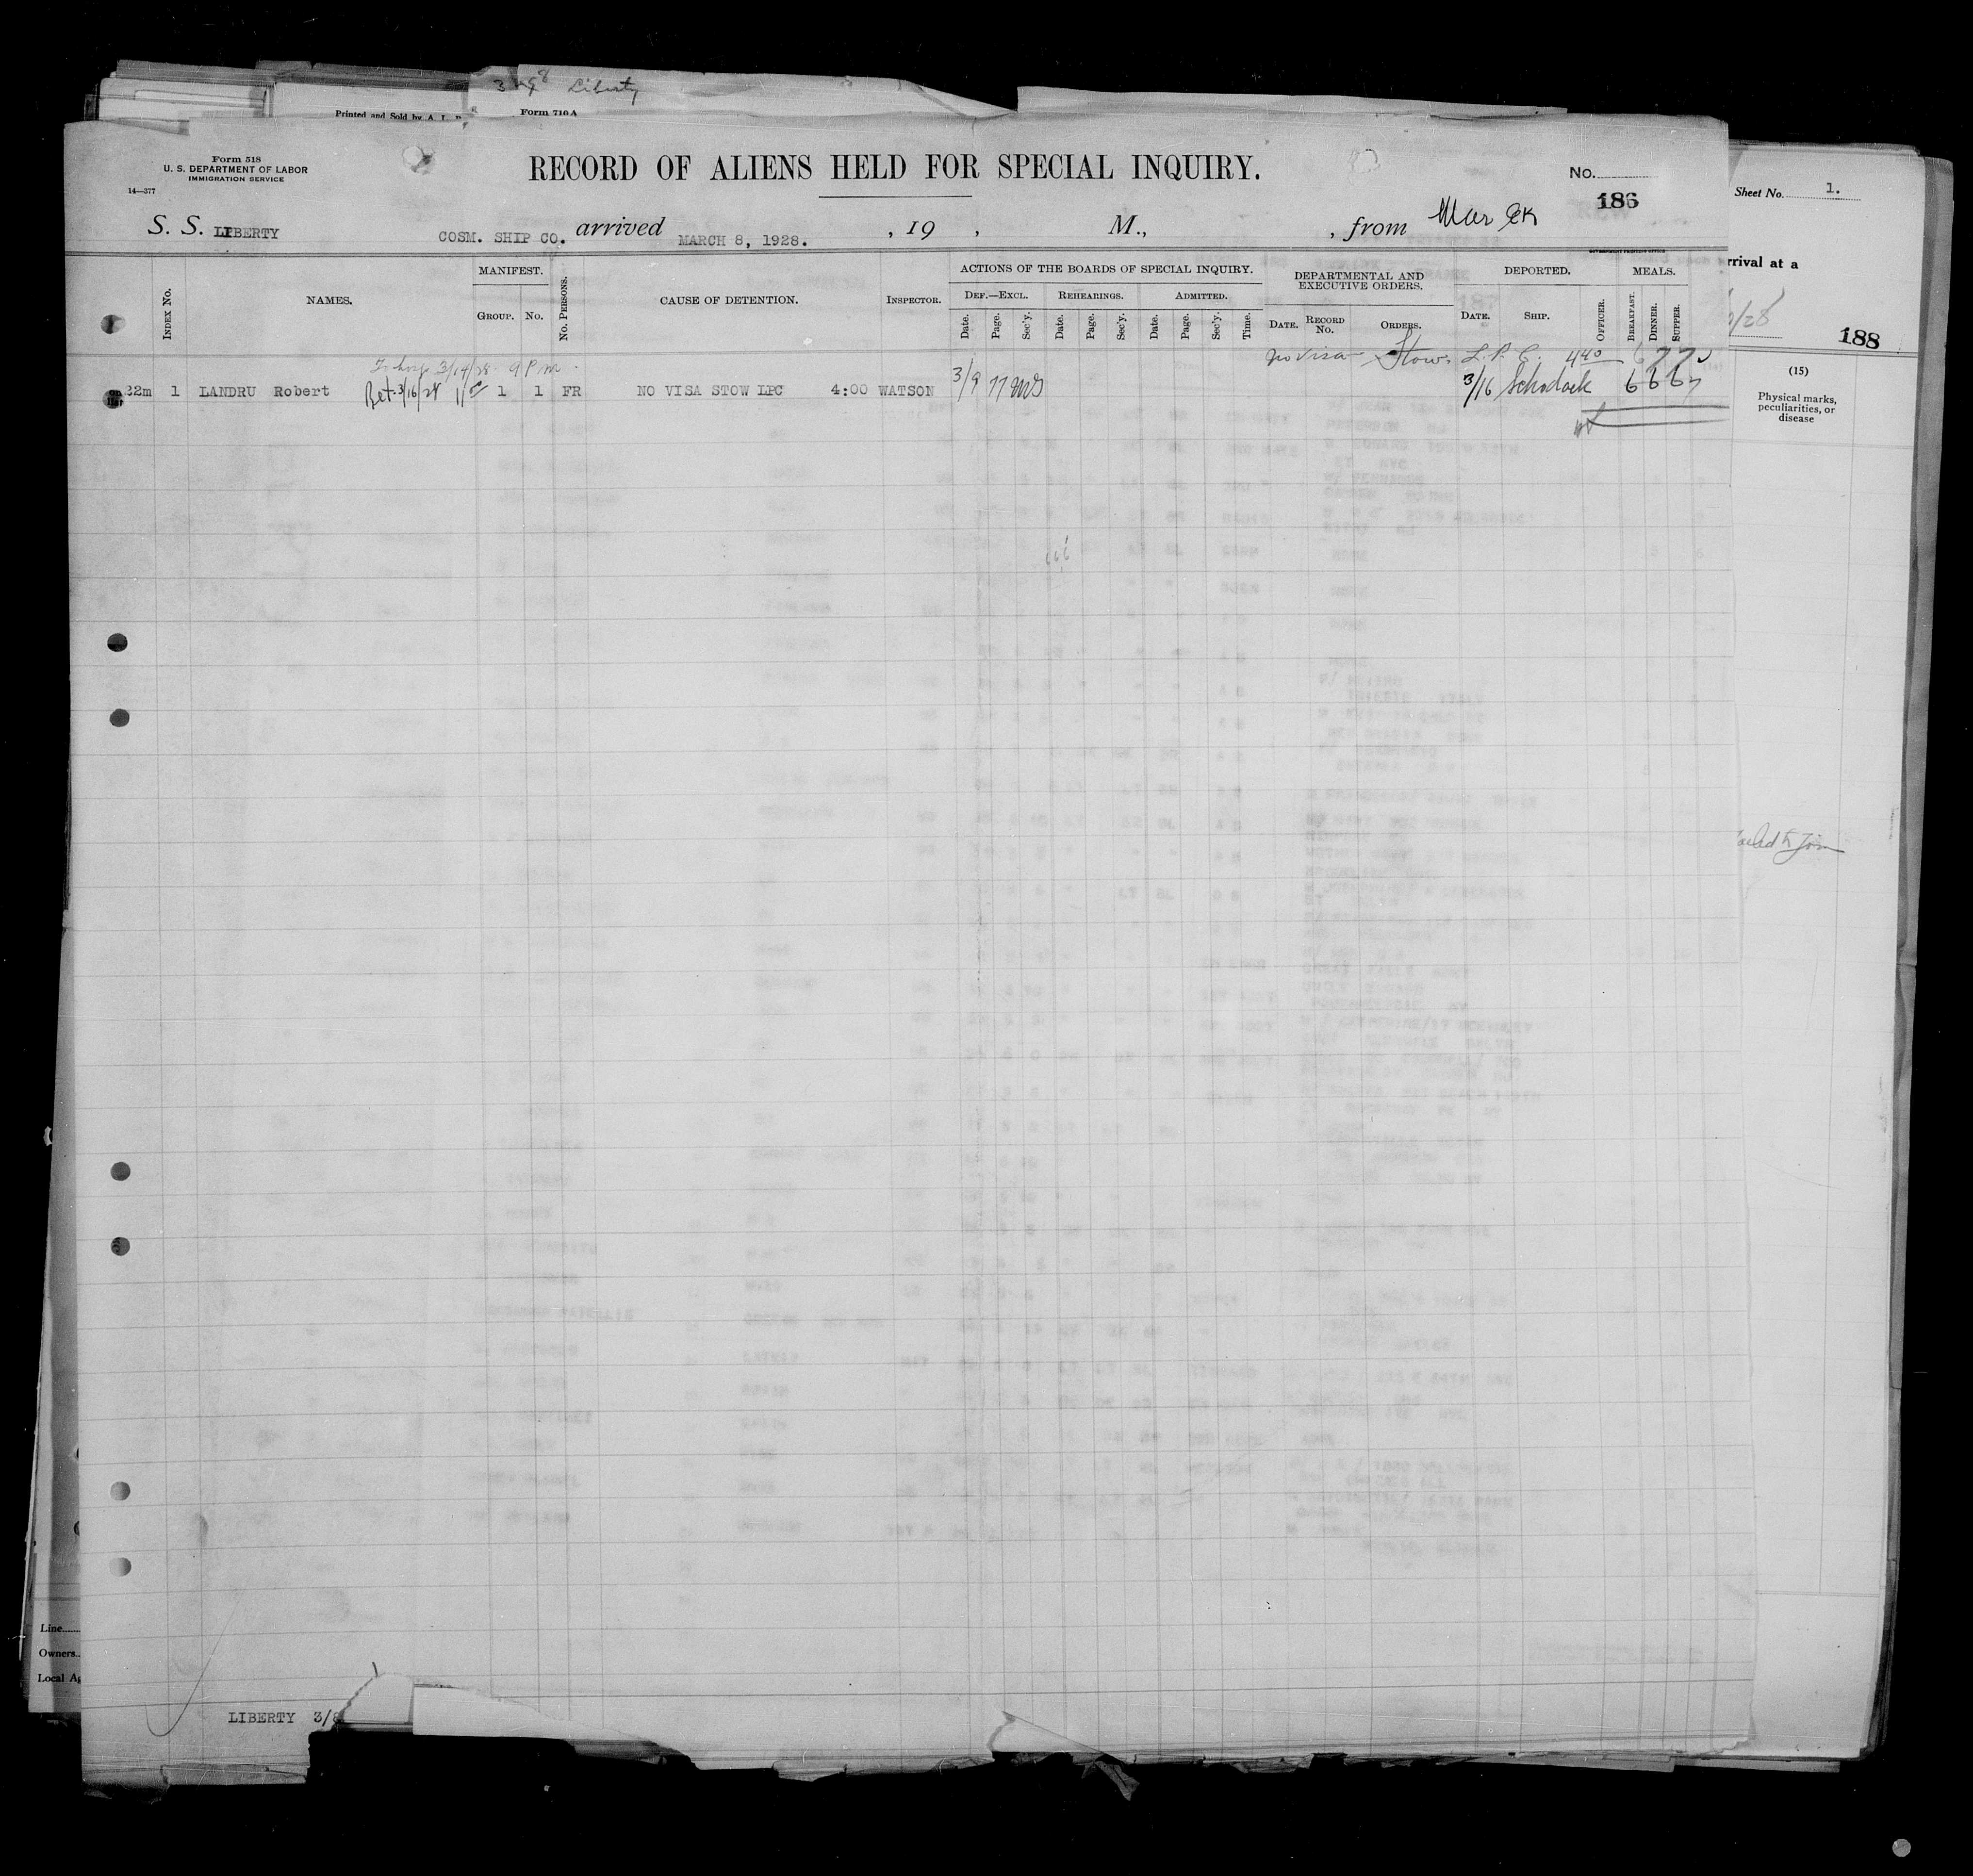 3/8 Liberty
Printed and Sold by A. L.
Form 710A
Form 518
U. S. DEPARTMENT OF LABOR
IMMIGRATION SERVICE
14—377
RECORD OF ALIENS HELD FOR SPECIAL INQUIRY.
No.
186
Sheet No. 1.
S. S. LIBERTY COSM. SHIP CO. arrived MARCH 8, 1928. , 19 , M., , from
rrival at a
/28
188
INDEX No.
NAMES.
MANIFEST.
GROUP. No.
No. PERSONS.
CAUSE OF DETENTION.
INSPECTOR.
ACTIONS OF THE BOARDS OF SPECIAL INQUIRY.
DEF.—EXCL. REHEARINGS. ADMITTED.
Date. Page. Sec'y. Date. Page. Sec'y. Date. Page. Sec'y. Time.
DEPARTMENTAL AND EXECUTIVE ORDERS.
DATE. RECORD No. ORDERS.
DEPORTED.
DATE. SHIP. OFFICER.
MEALS.
BREAKFAST. DINNER. SUPPER.
To hosp 3/14/28 9 P m. no visa Stow. L. P. C. 440
22m 1 LANDRU Robert Ret 3/16/28 1 1 FR NO VISA STOW LPC 4:00 WATSON 3/9 77 3/16 Schodack 6 6 6
(15)
Physical marks, peculiarities, or disease
Line
Owners
Local Ag
LIBERTY 3/8